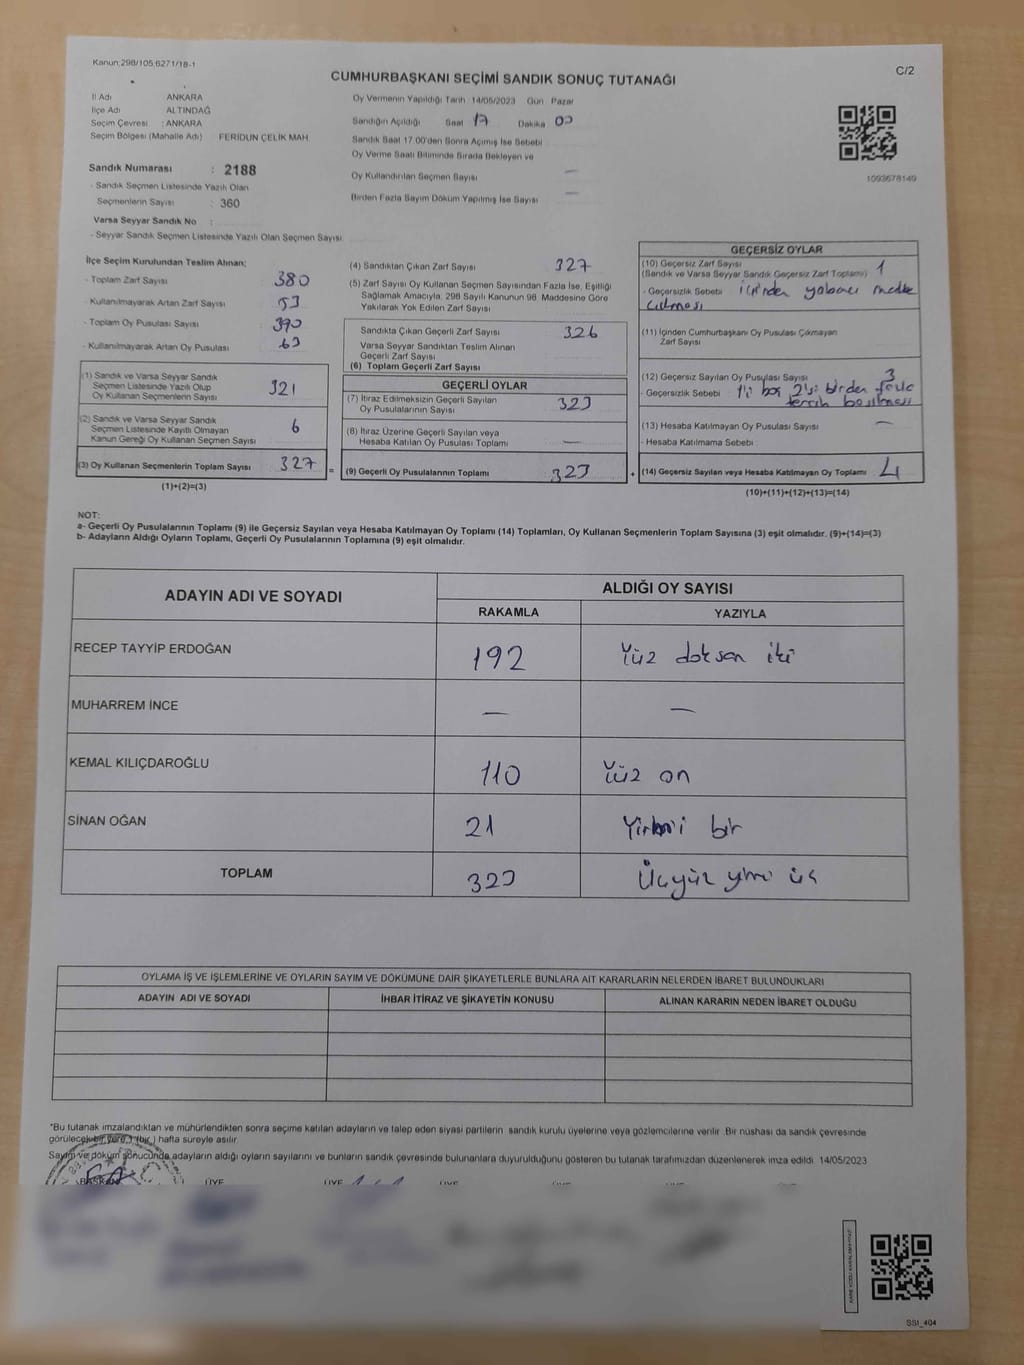 Kanun:298/105,6271/18-1
C/2
CUMHURBAŞKANI SEÇİMİ SANDIK SONUÇ TUTANAĞI
İl Adı ANKARA
İlçe Adı ALTINDAĞ
Seçim Çevresi : ANKARA
Seçim Bölgesi (Mahalle Adı) FERİDUN ÇELİK MAH
Sandık Numarası : 2188
- Sandık Seçmen Listesinde Yazılı Olan
Seçmenlerin Sayısı : 360
Varsa Seyyar Sandık No :
- Seyyar Sandık Seçmen Listesinde Yazılı Olan Seçmen Sayısı
Oy Vermenin Yapıldığı Tarih 14/05/2023 Gün Pazar
Sandığın Açıldığı Saat 17 Dakika 00
Sandık Saat 17.00'den Sonra Açılmış İse Sebebi
Oy Verme Saati Bitiminde Sırada Bekleyen ve
Oy Kullandırılan Seçmen Sayısı —
Birden Fazla Sayım Döküm Yapılmış İse Sayısı —
1093678149
İlçe Seçim Kurulundan Teslim Alınan;
- Toplam Zarf Sayısı 380
- Kullanılmayarak Artan Zarf Sayısı 53
- Toplam Oy Pusulası Sayısı 390
- Kullanılmayarak Artan Oy Pusulası 63
(1) Sandık ve Varsa Seyyar Sandık
Seçmen Listesinde Yazılı Olup
Oy Kullanan Seçmenlerin Sayısı 321
(2) Sandık ve Varsa Seyyar Sandık
Seçmen Listesinde Kayıtlı Olmayan
Kanun Gereği Oy Kullanan Seçmen Sayısı 6
(3) Oy Kullanan Seçmenlerin Toplam Sayısı 327 =
(1)+(2)=(3)
(4) Sandıktan Çıkan Zarf Sayısı 327
(5) Zarf Sayısı Oy Kullanan Seçmen Sayısından Fazla İse, Eşitliği
Sağlamak Amacıyla, 298 Sayılı Kanunun 98. Maddesine Göre
Yakılarak Yok Edilen Zarf Sayısı
Sandıkta Çıkan Geçerli Zarf Sayısı 326
Varsa Seyyar Sandıktan Teslim Alınan
Geçerli Zarf Sayısı
(6) Toplam Geçerli Zarf Sayısı
GEÇERLİ OYLAR
(7) İtiraz Edilmeksizin Geçerli Sayılan
Oy Pusulalarının Sayısı : 323
(8) İtiraz Üzerine Geçerli Sayılan veya
Hesaba Katılan Oy Pusulası Toplamı : —
(9) Geçerli Oy Pusulalarının Toplamı : 323 +
GEÇERSİZ OYLAR
(10) Geçersiz Zarf Sayısı
(Sandık ve Varsa Seyyar Sandık Geçersiz Zarf Toplamı) 1
- Geçersizlik Sebebi içinden yabancı madde
çıkması
(11) İçinden Cumhurbaşkanı Oy Pusulası Çıkmayan
Zarf Sayısı
(12) Geçersiz Sayılan Oy Pusulası Sayısı 3
- Geçersizlik Sebebi 1'i boş 2'si birden fazla
tercih basılması
(13) Hesaba Katılmayan Oy Pusulası Sayısı —
- Hesaba Katılmama Sebebi
(14) Geçersiz Sayılan veya Hesaba Katılmayan Oy Toplamı 4
(10)+(11)+(12)+(13)=(14)
NOT:
a- Geçerli Oy Pusulalarının Toplamı (9) ile Geçersiz Sayılan veya Hesaba Katılmayan Oy Toplamı (14) Toplamları, Oy Kullanan Seçmenlerin Toplam Sayısına (3) eşit olmalıdır. (9)+(14)=(3)
b- Adayların Aldığı Oyların Toplamı, Geçerli Oy Pusulalarının Toplamına (9) eşit olmalıdır.
ADAYIN ADI VE SOYADI
ALDIĞI OY SAYISI
RAKAMLA YAZIYLA
RECEP TAYYİP ERDOĞAN 192 Yüz doksan iki
MUHARREM İNCE — —
KEMAL KILIÇDAROĞLU 110 Yüz on
SİNAN OĞAN 21 Yirmi bir
TOPLAM 323 Üçyüz yirmi üç
OYLAMA İŞ VE İŞLEMLERİNE VE OYLARIN SAYIM VE DÖKÜMÜNE DAİR ŞİKAYETLERLE BUNLARA AİT KARARLARIN NELERDEN İBARET BULUNDUKLARI
ADAYIN ADI VE SOYADI İHBAR İTİRAZ VE ŞİKAYETİN KONUSU ALINAN KARARIN NEDEN İBARET OLDUĞU
*Bu tutanak imzalandıktan ve mühürlendikten sonra seçime katılan adayların ve talep eden siyasi partilerin sandık kurulu üyelerine veya gözlemcilerine verilir. Bir nüshası da sandık çevresinde
görülecek bir yere 1 (bir) hafta süreyle asılır.
Sayım ve döküm sonucunda adayların aldığı oyların sayılarını ve bunların sandık çevresinde bulunanlara duyurulduğunu gösteren bu tutanak tarafımızdan düzenlenerek imza edildi. 14/05/2023
BAŞKAN ÜYE ÜYE ÜYE
SSI_404